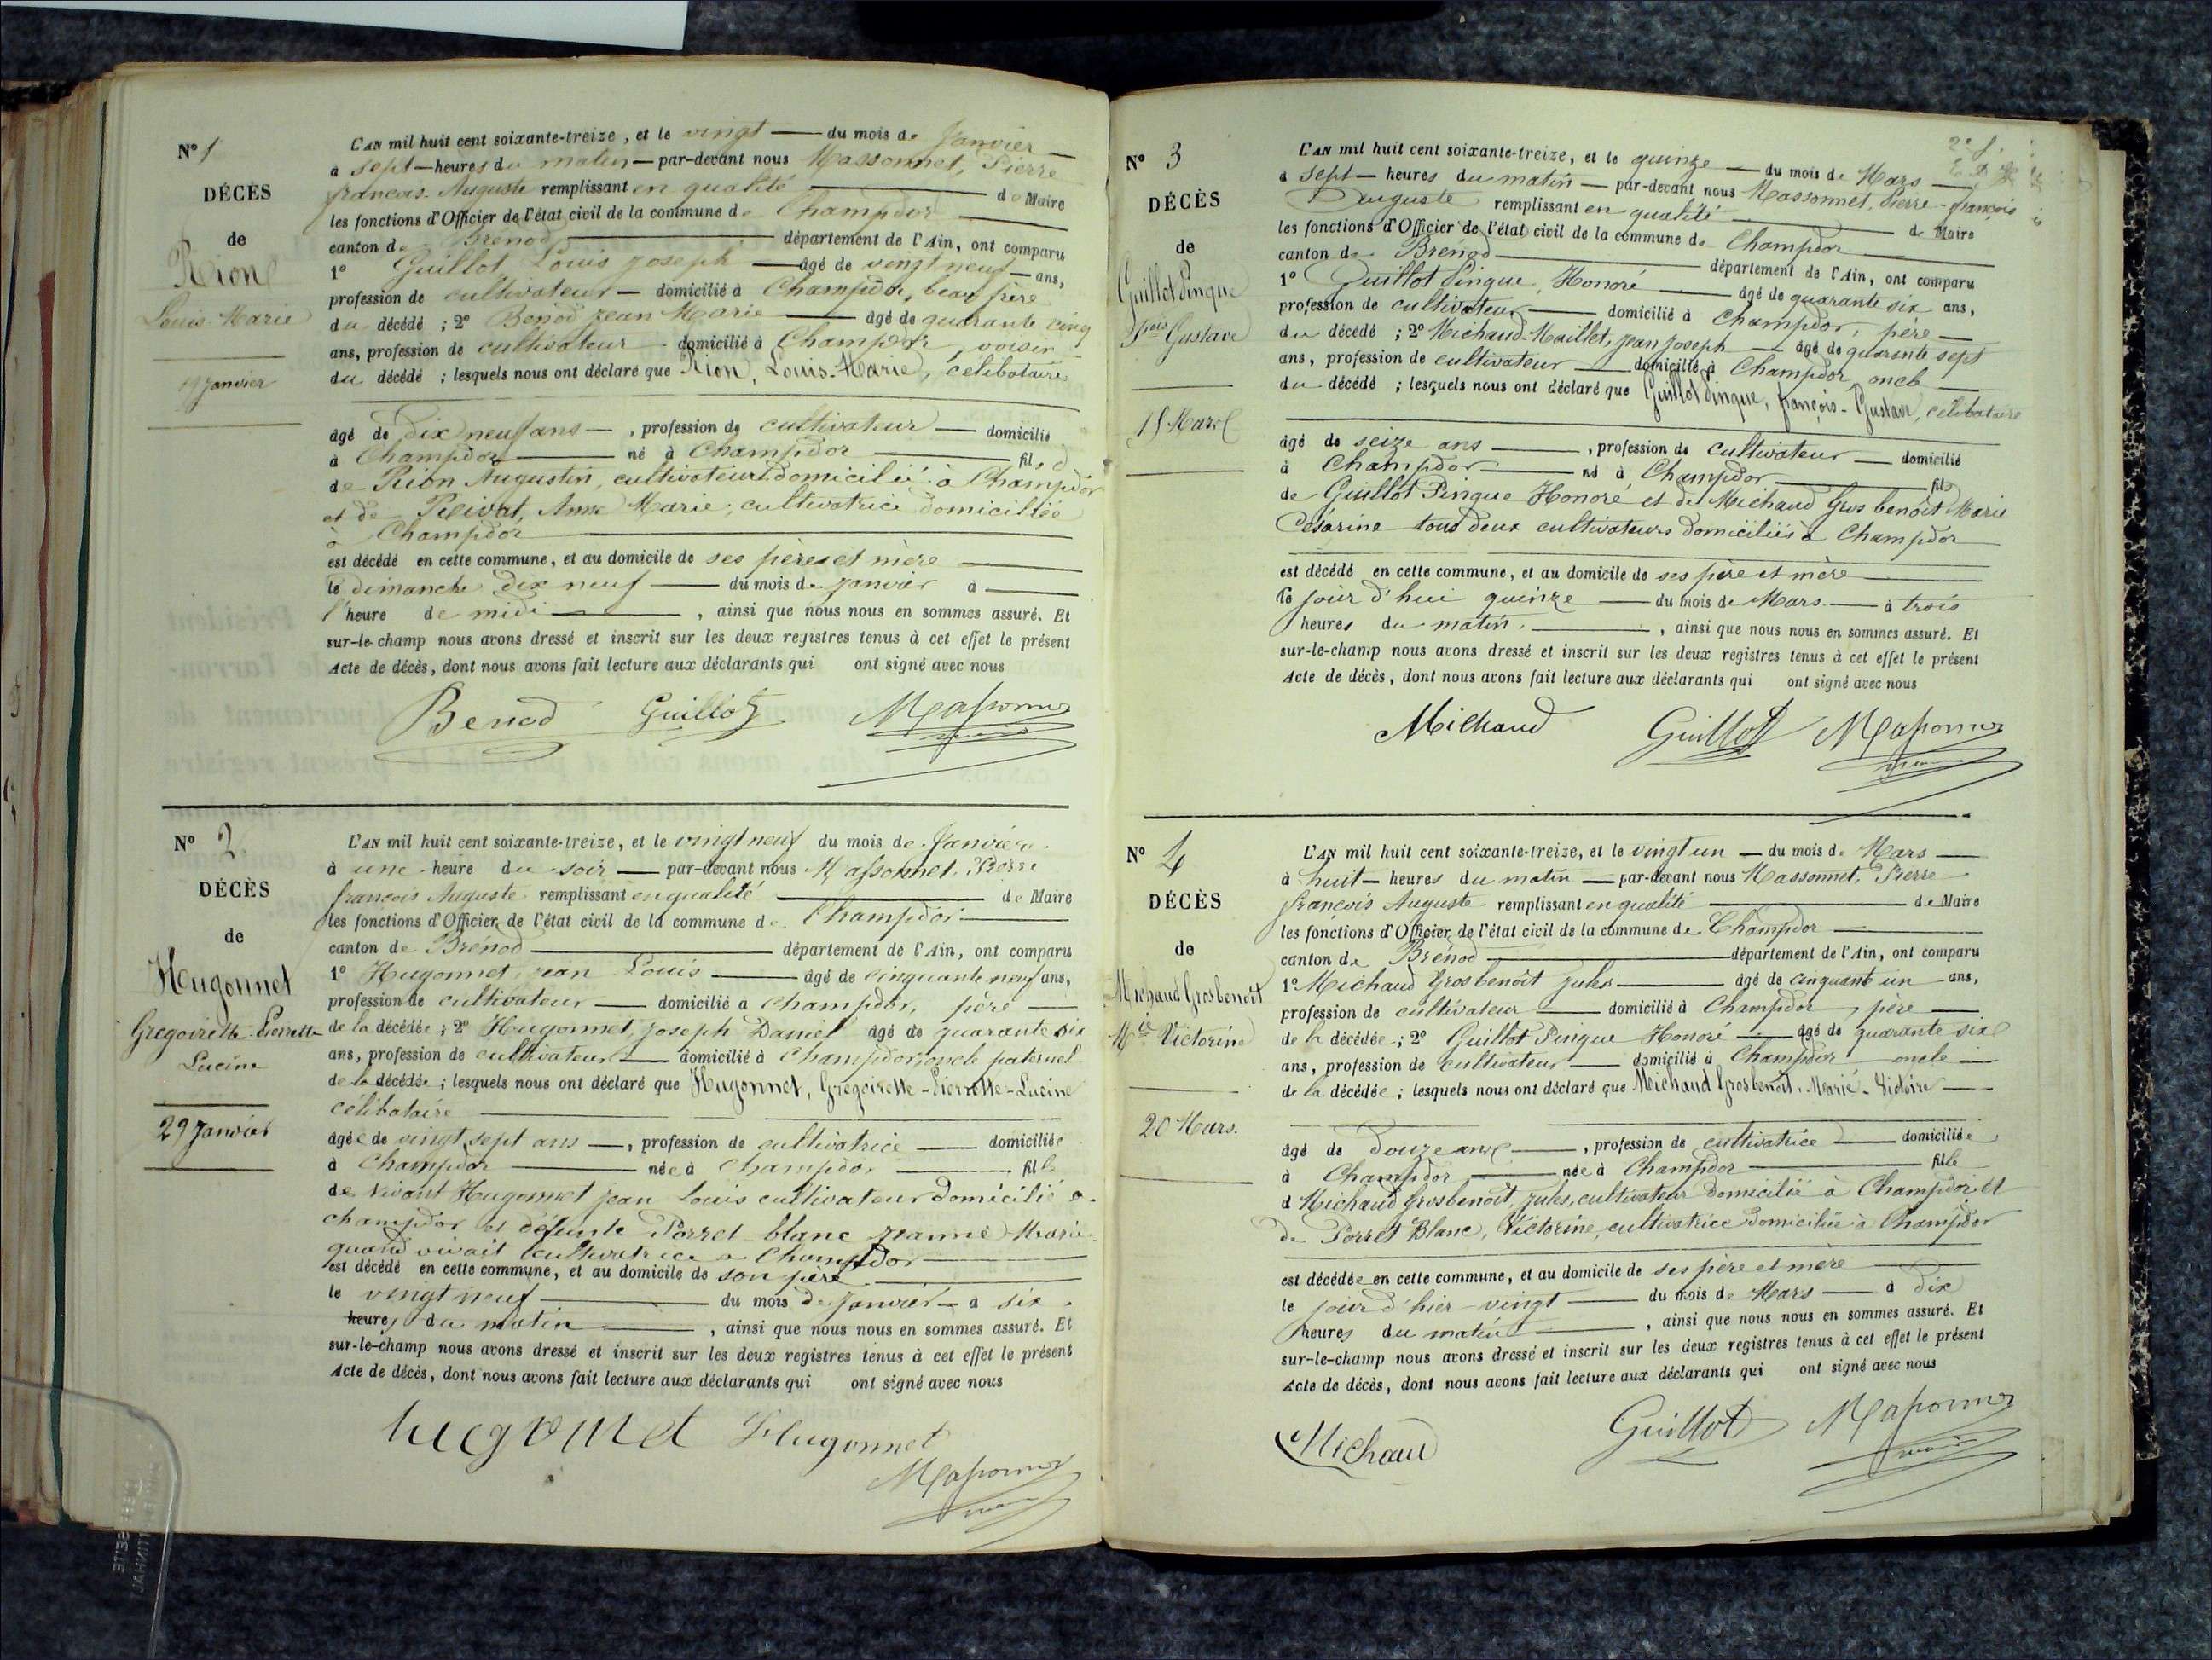 N° 1
DÉCÈS
de
Rion
Louis Marie
19 Janvier
L'AN mil huit cent soixante-treize, et le vingt — du mois de Janvier —
à sept — heures du matin — par-devant nous Massonnet, Pierre
françois Auguste remplissant en qualité — de Maire
les fonctions d'Officier de l'état civil de la commune de Champdor —
canton de Brénod — département de l'Ain, ont comparu
1° Guillot Louis Joseph — âgé de vingt neuf — ans,
profession de cultivateur — domicilié à Champdor, beau frère
du décédé ; 2° Benod Jean Marie — âgé de quarante cinq
ans, profession de cultivateur domicilié à Champdor, voisin
du décédé ; lesquels nous ont déclaré que Rion, Louis-Marie, célibataire
âgé de dix neuf ans —, profession de cultivateur — domicilié
à Champdor — né à Champdor — fils
de Rion Augustin, cultivateur domicilié à Champdor
et de Anne Marie, cultivatrice domiciliée
à Champdor —
est décédé en cette commune, et au domicile de ses pères et mère —
le dimanche dix neuf — du mois de Janvier à —
l'heure de midi —, ainsi que nous nous en sommes assuré. Et
sur-le-champ nous avons dressé et inscrit sur les deux registres tenus à cet effet le présent
Acte de décès, dont nous avons fait lecture aux déclarants qui ont signé avec nous
Benod Guillot Massonnet
N° 2
DÉCÈS
de
Hugonnet
Gregoirette-Pierrette
Lucine
29 Janvier
L'AN mil huit cent soixante-treize, et le vingt neuf du mois de Janvier
à une heure du soir — par-devant nous Massonnet, Pierre
françois Auguste remplissant en qualité — de Maire
les fonctions d'Officier de l'état civil de la commune de Champdor —
canton de Brénod — département de l'Ain, ont comparu
1° Hugonnet, jean Louis — âgé de cinquante neuf ans,
profession de cultivateur — domicilié à Champdor, père —
de la décédée ; 2° Hugonnet, Joseph Daniel âgé de quarante six
ans, profession de cultivateur — domicilié à Champdor, oncle paternel
de la décédée ; lesquels nous ont déclaré que Hugonnet, Grégoirette-Pierrette-Lucine
célibataire —
âgée de vingt sept ans —, profession de cultivatrice — domiciliée
à Champdor — née à Champdor — fille
de vivant Hugonnet jean Louis cultivateur domicilié à
champdor et défunte Porret blanc jeanne Marie
quand vivait cultivatrice à Champdor —
est décédé en cette commune, et au domicile de son père —
le vingt neuf — du mois de Janvier — à six
heures du matin —, ainsi que nous nous en sommes assuré. Et
sur-le-champ nous avons dressé et inscrit sur les deux registres tenus à cet effet le présent
Acte de décès, dont nous avons fait lecture aux déclarants qui ont signé avec nous
hugonnet Hugonnet
Massonnet
N° 3
DÉCÈS
de
Guillot Pingue
Fois Gustave
15 Mars
L'AN mil huit cent soixante-treize, et le quinze — du mois de Mars —
à sept — heures du matin — par-devant nous Massonnet, Pierre-françois
Auguste remplissant en qualité — de Maire
les fonctions d'Officier de l'état civil de la commune de Champdor —
canton de Brénod — département de l'Ain, ont comparu
1° Guillot Pingue, Honoré — âgé de quarante six ans,
profession de cultivateur — domicilié à Champdor, père —
du décédé ; 2° Michaud-Maillet, Jean Joseph — âgé de quarante sept
ans, profession de cultivateur — domicilié à Champdor, oncle —
du décédé ; lesquels nous ont déclaré que Guillot Pingue, françois-Gustave, célibataire
âgé de seize ans —, profession de cultivateur — domicilié
à Champdor — né à Champdor — fils
de Guillot Pingue Honoré et de Michaud Gros benoît Marie
Césarine tous deux cultivateurs domiciliés à Champdor
est décédé en cette commune, et au domicile de ses père et mère —
le jour d'hui quinze — du mois de Mars — à trois
heures du matin —, ainsi que nous nous en sommes assuré. Et
sur-le-champ nous avons dressé et inscrit sur les deux registres tenus à cet effet le présent
Acte de décès, dont nous avons fait lecture aux déclarants qui ont signé avec nous
Michaud Guillot Massonnet
N° 4
DÉCÈS
de
Michaud Grosbenoit
Mie Victorine
20 Mars.
L'AN mil huit cent soixante-treize, et le vingt un — du mois de Mars —
à huit — heures du matin — par-devant nous Massonnet, Pierre
françois Auguste remplissant en qualité — de Maire
les fonctions d'Officier de l'état civil de la commune de Champdor —
canton de Brénod — département de l'Ain, ont comparu
1° Michaud Grosbenoît Jules — âgé de cinquante un ans,
profession de cultivateur — domicilié à Champdor, père —
de la décédée ; 2° Guillot Pingue Honoré — âgé de quarante six
ans, profession de cultivateur — domicilié à Champdor oncle —
de la décédée ; lesquels nous ont déclaré que Michaud Grosbenoît, Marie-Victoire —
âgé de douze ans —, profession de cultivatrice — domiciliée
à Champdor — née à Champdor — fille
d Michaud Grosbenoît, Jules, cultivateur domicilié à Champdor et
de Porret Blanc, Victorine, cultivatrice domiciliée à Champdor
est décédée en cette commune, et au domicile de ses père et mère —
le jour d'hier vingt — du mois de Mars — à dix
heures du matin —, ainsi que nous nous en sommes assuré. Et
sur-le-champ nous avons dressé et inscrit sur les deux registres tenus à cet effet le présent
Acte de décès, dont nous avons fait lecture aux déclarants qui ont signé avec nous
Michau Guillot Massonnet